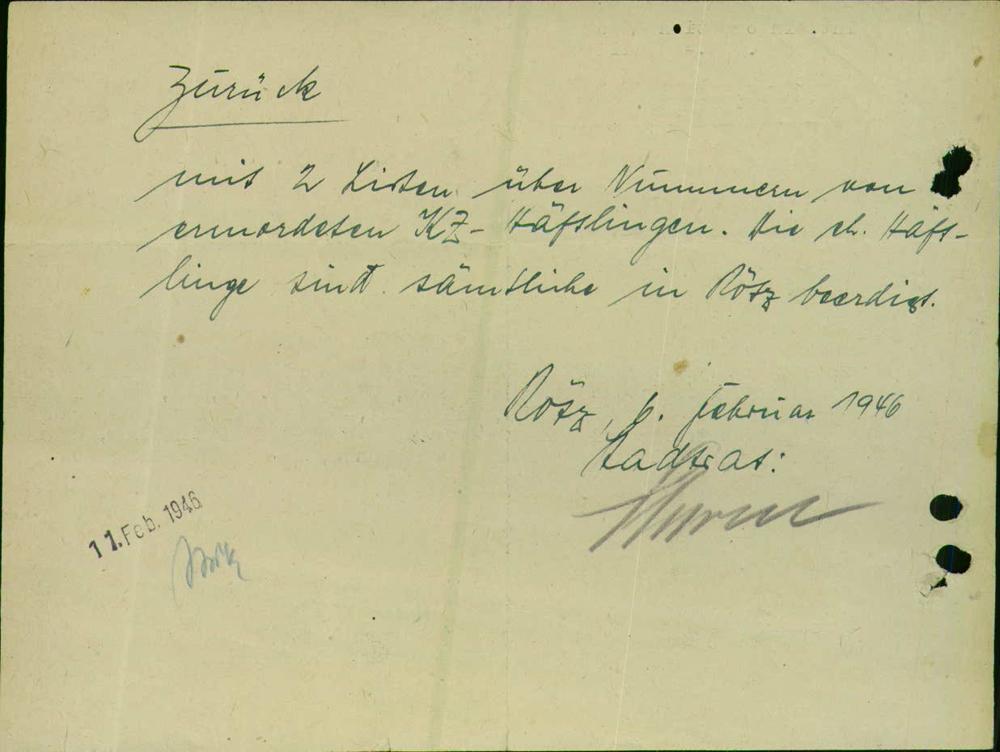 Zurück
mit 2 Listen über Nummern von
ermordeten KZ-Häftlingen. Die eh. Häft-
linge sind sämtliche in Rötz beerdigt.
Rötz, 6. Februar 1946
Stadtrat:
11. Feb. 1946